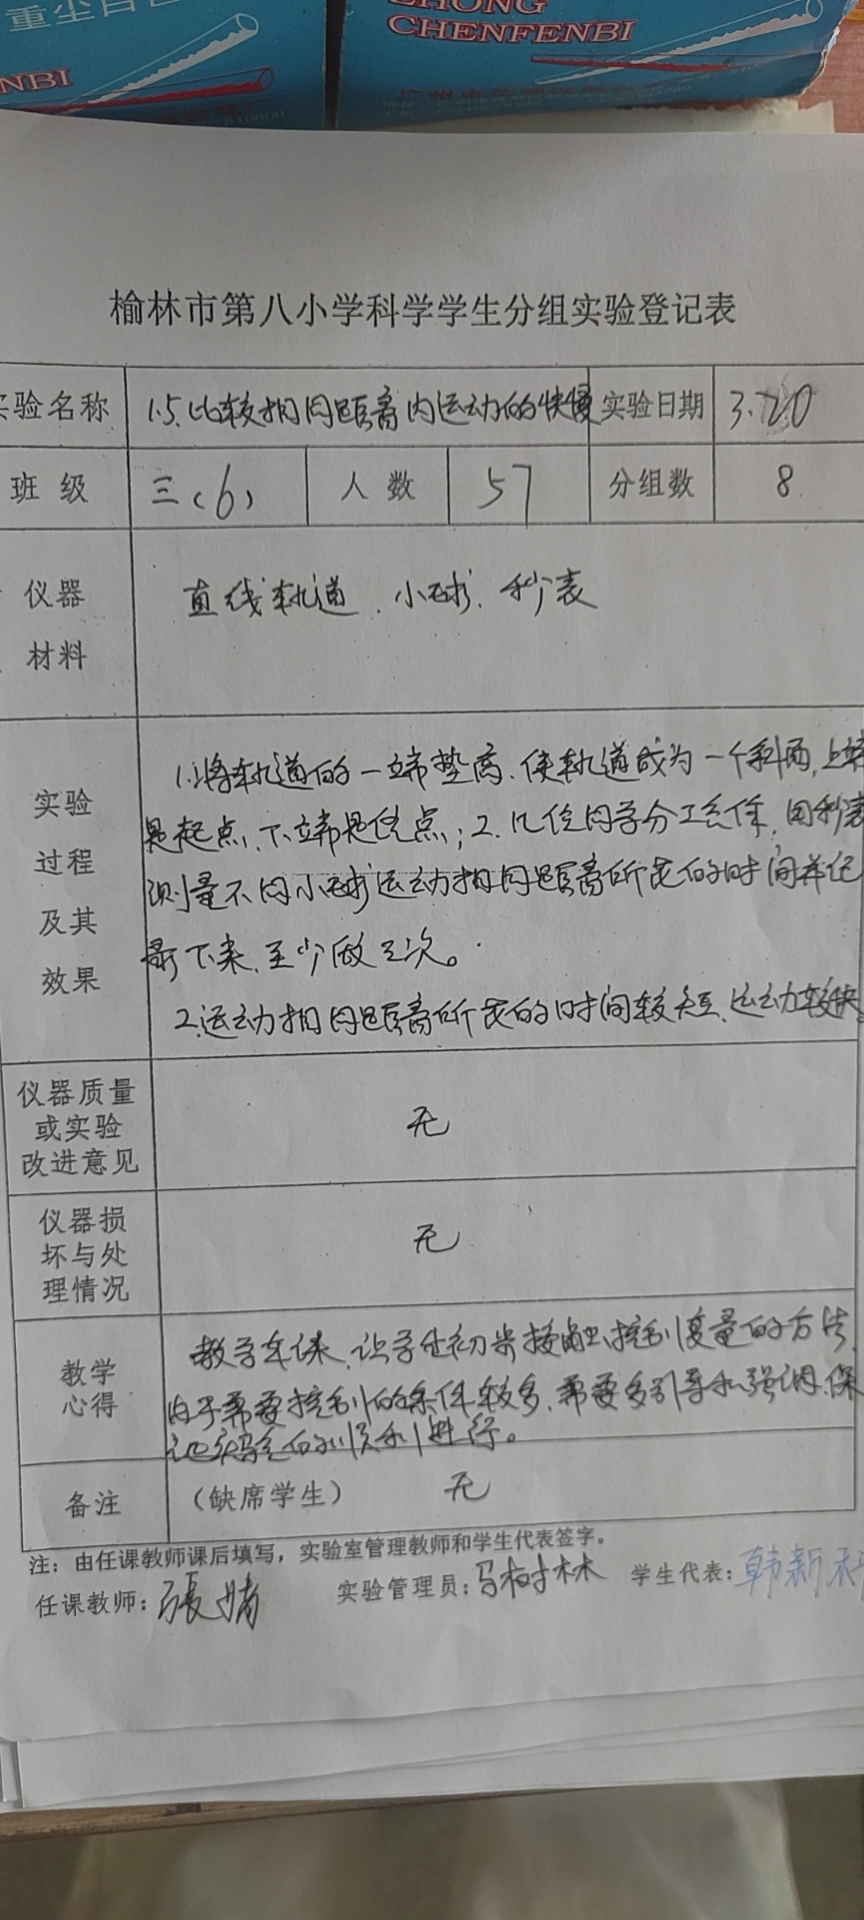 重尘
ZHONG
CHENFENBI
NBI
榆林市第八小学科学学生分组实验登记表
实验名称 1.5.比较相同距离内运动的快慢 实验日期 3.20
班级 三(6) 人数 57 分组数 8
仪器材料 直线轨道、小球、秒表
实验过程及其效果
1.将轨道的一端垫高、使轨道成为一个斜面,上端
是起点、下端是终点;2.几位同学分工合作,用秒表
测量不同小球运动相同距离所花的时间并记
录下来、至少做三次。
2.运动相同距离所花的时间较短、运动较快。
仪器质量或实验改进意见 无
仪器损坏与处理情况 无
教学心得
教学本课、让学生初步接触控制变量的方法、
由于需要控制的条件较多、需要多引导和强调、保
证实验的顺利进行。
备注 (缺席学生) 无
注:由任课教师课后填写,实验室管理教师和学生代表签字。
任课教师:张 实验管理员:马树林 学生代表:韩新